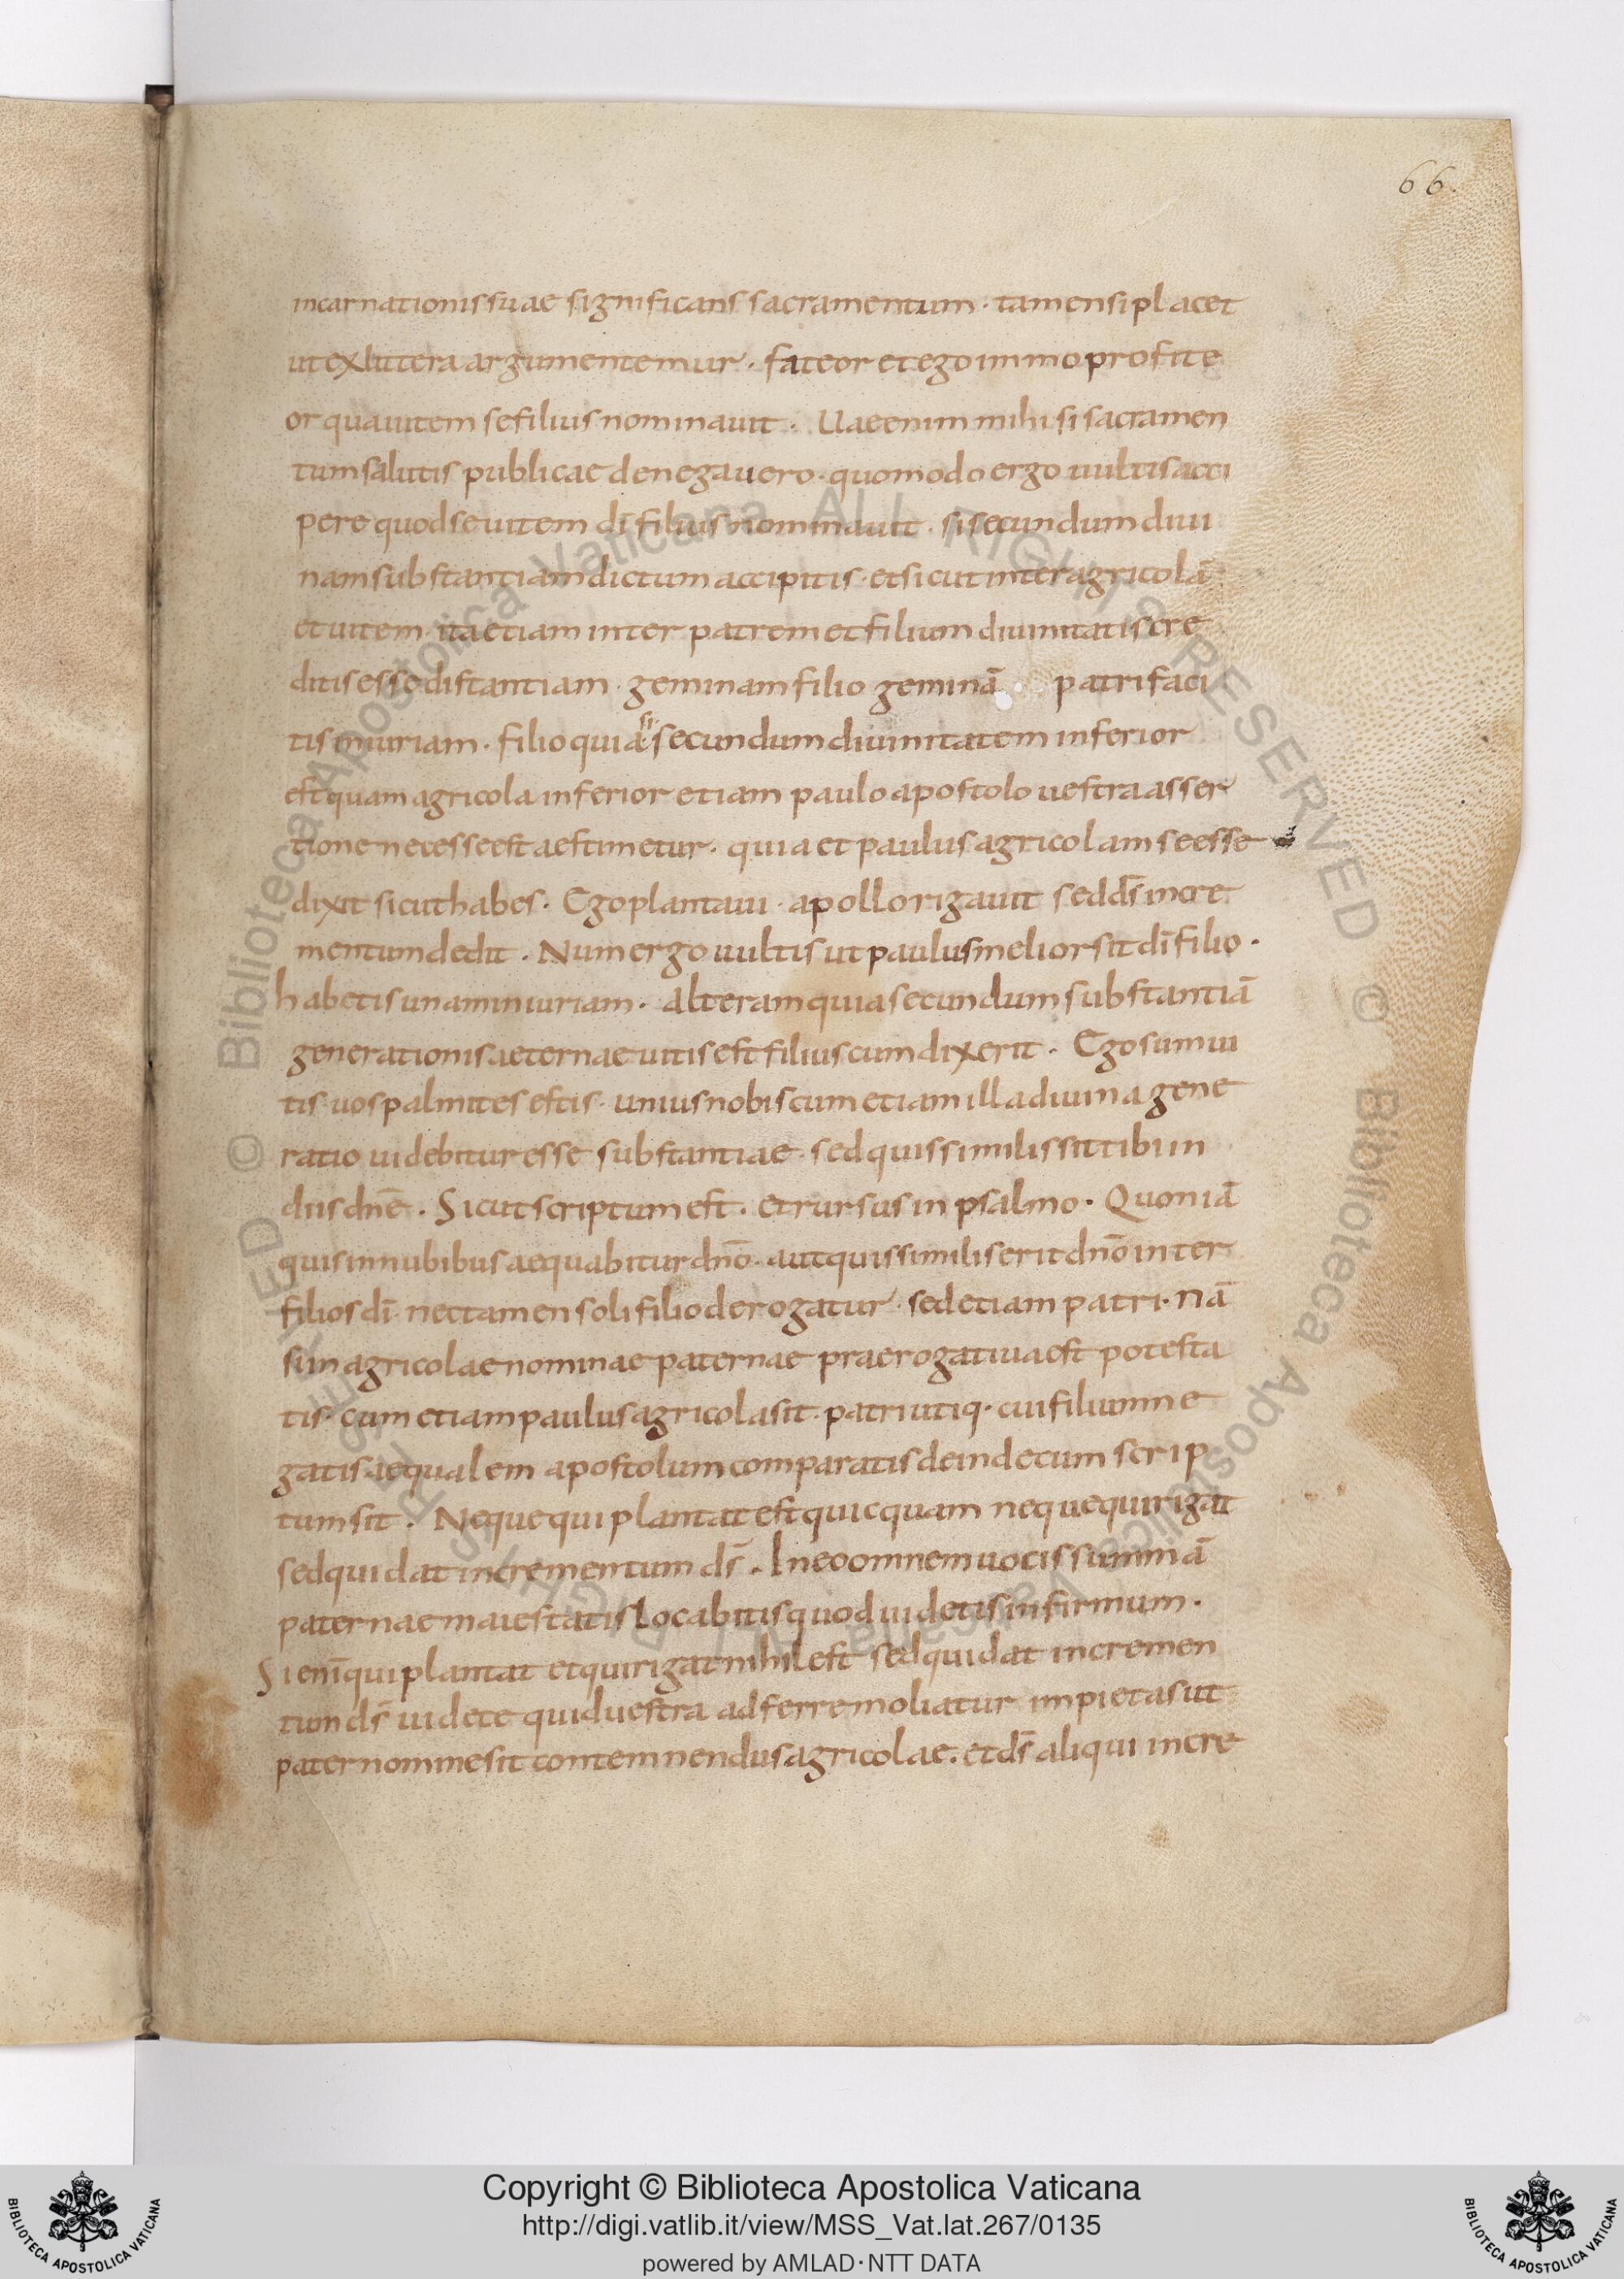 66.
incarnationis suae significans sacramentum · tamen si placet
ut ex littera argumentemur · fateor et ego immo profite
or qua uitem se filius nominauit · Uae enim mihi si sacramen
tum salutis publicae denegauero · quomodo ergo uultis acci
pere quod se uitem dī filius nominauit · si secundum diui
nam substantiam dictum accipitis · et sicut inter agricolā
et uitem · ita etiam inter patrem et filium diuinitatis cre
ditis esse distantiam · geminam filio geminā patri faci
tis iniuriam · filio quia si secundum diuinitatem inferior
est quam agricola inferior etiam paulo apostolo uestra asser
tione necesse est aestimetur · quia et paulus agricolam se esse
dixit sicut habes · Ego plantaui · apollo rigauit sed dš incre
mentum dedit · Num ergo uultis ut paulus melior sit dī filio ·
habetis unam iniuriam · Alteram quia secundum substantiā
generationis aeternae uitis est filius cum dixerit · Ego sum ui
tis · uos palmites estis · unius nobiscum etiam illa diuina gene
ratio uidebitur esse substantiae · sed quis similis sit tibi in
diis dnē · Sicut scriptum est · et rursus in psalmo · Quoniā
quis in nubibus aequabitur dnō · aut quis similis erit dnō inter
filios dī · nec tamen soli filio derogatur · sed etiam patri · nā
si in agricolae nominae paternae praerogatiua est potesta
tis · cum etiam paulus agricola sit · patri utiq · cui filium ne
gatis aequalem apostolum comparatis deinde cum scrip
tum sit · Neque qui plantat est quicquam neque qui rigat
sed qui dat incrementum dš · In eo omnem uocis summā
paternae maiestatis locabitis quod uidetis infirmum ·
Si enī qui plantat et qui rigat nihil est sed qui dat incremen
tum dš uidete quid uestra adferre moliatur impietas ut
pater nomine sit contemnendus agricolae · et dš aliqui incre
Copyright © Biblioteca Apostolica Vaticana
http://digi.vatlib.it/view/MSS_Vat.lat.267/0135
powered by AMLAD · NTT DATA
BIBLIOTECA APOSTOLICA VATICANA
BIBLIOTECA APOSTOLICA VATICANA